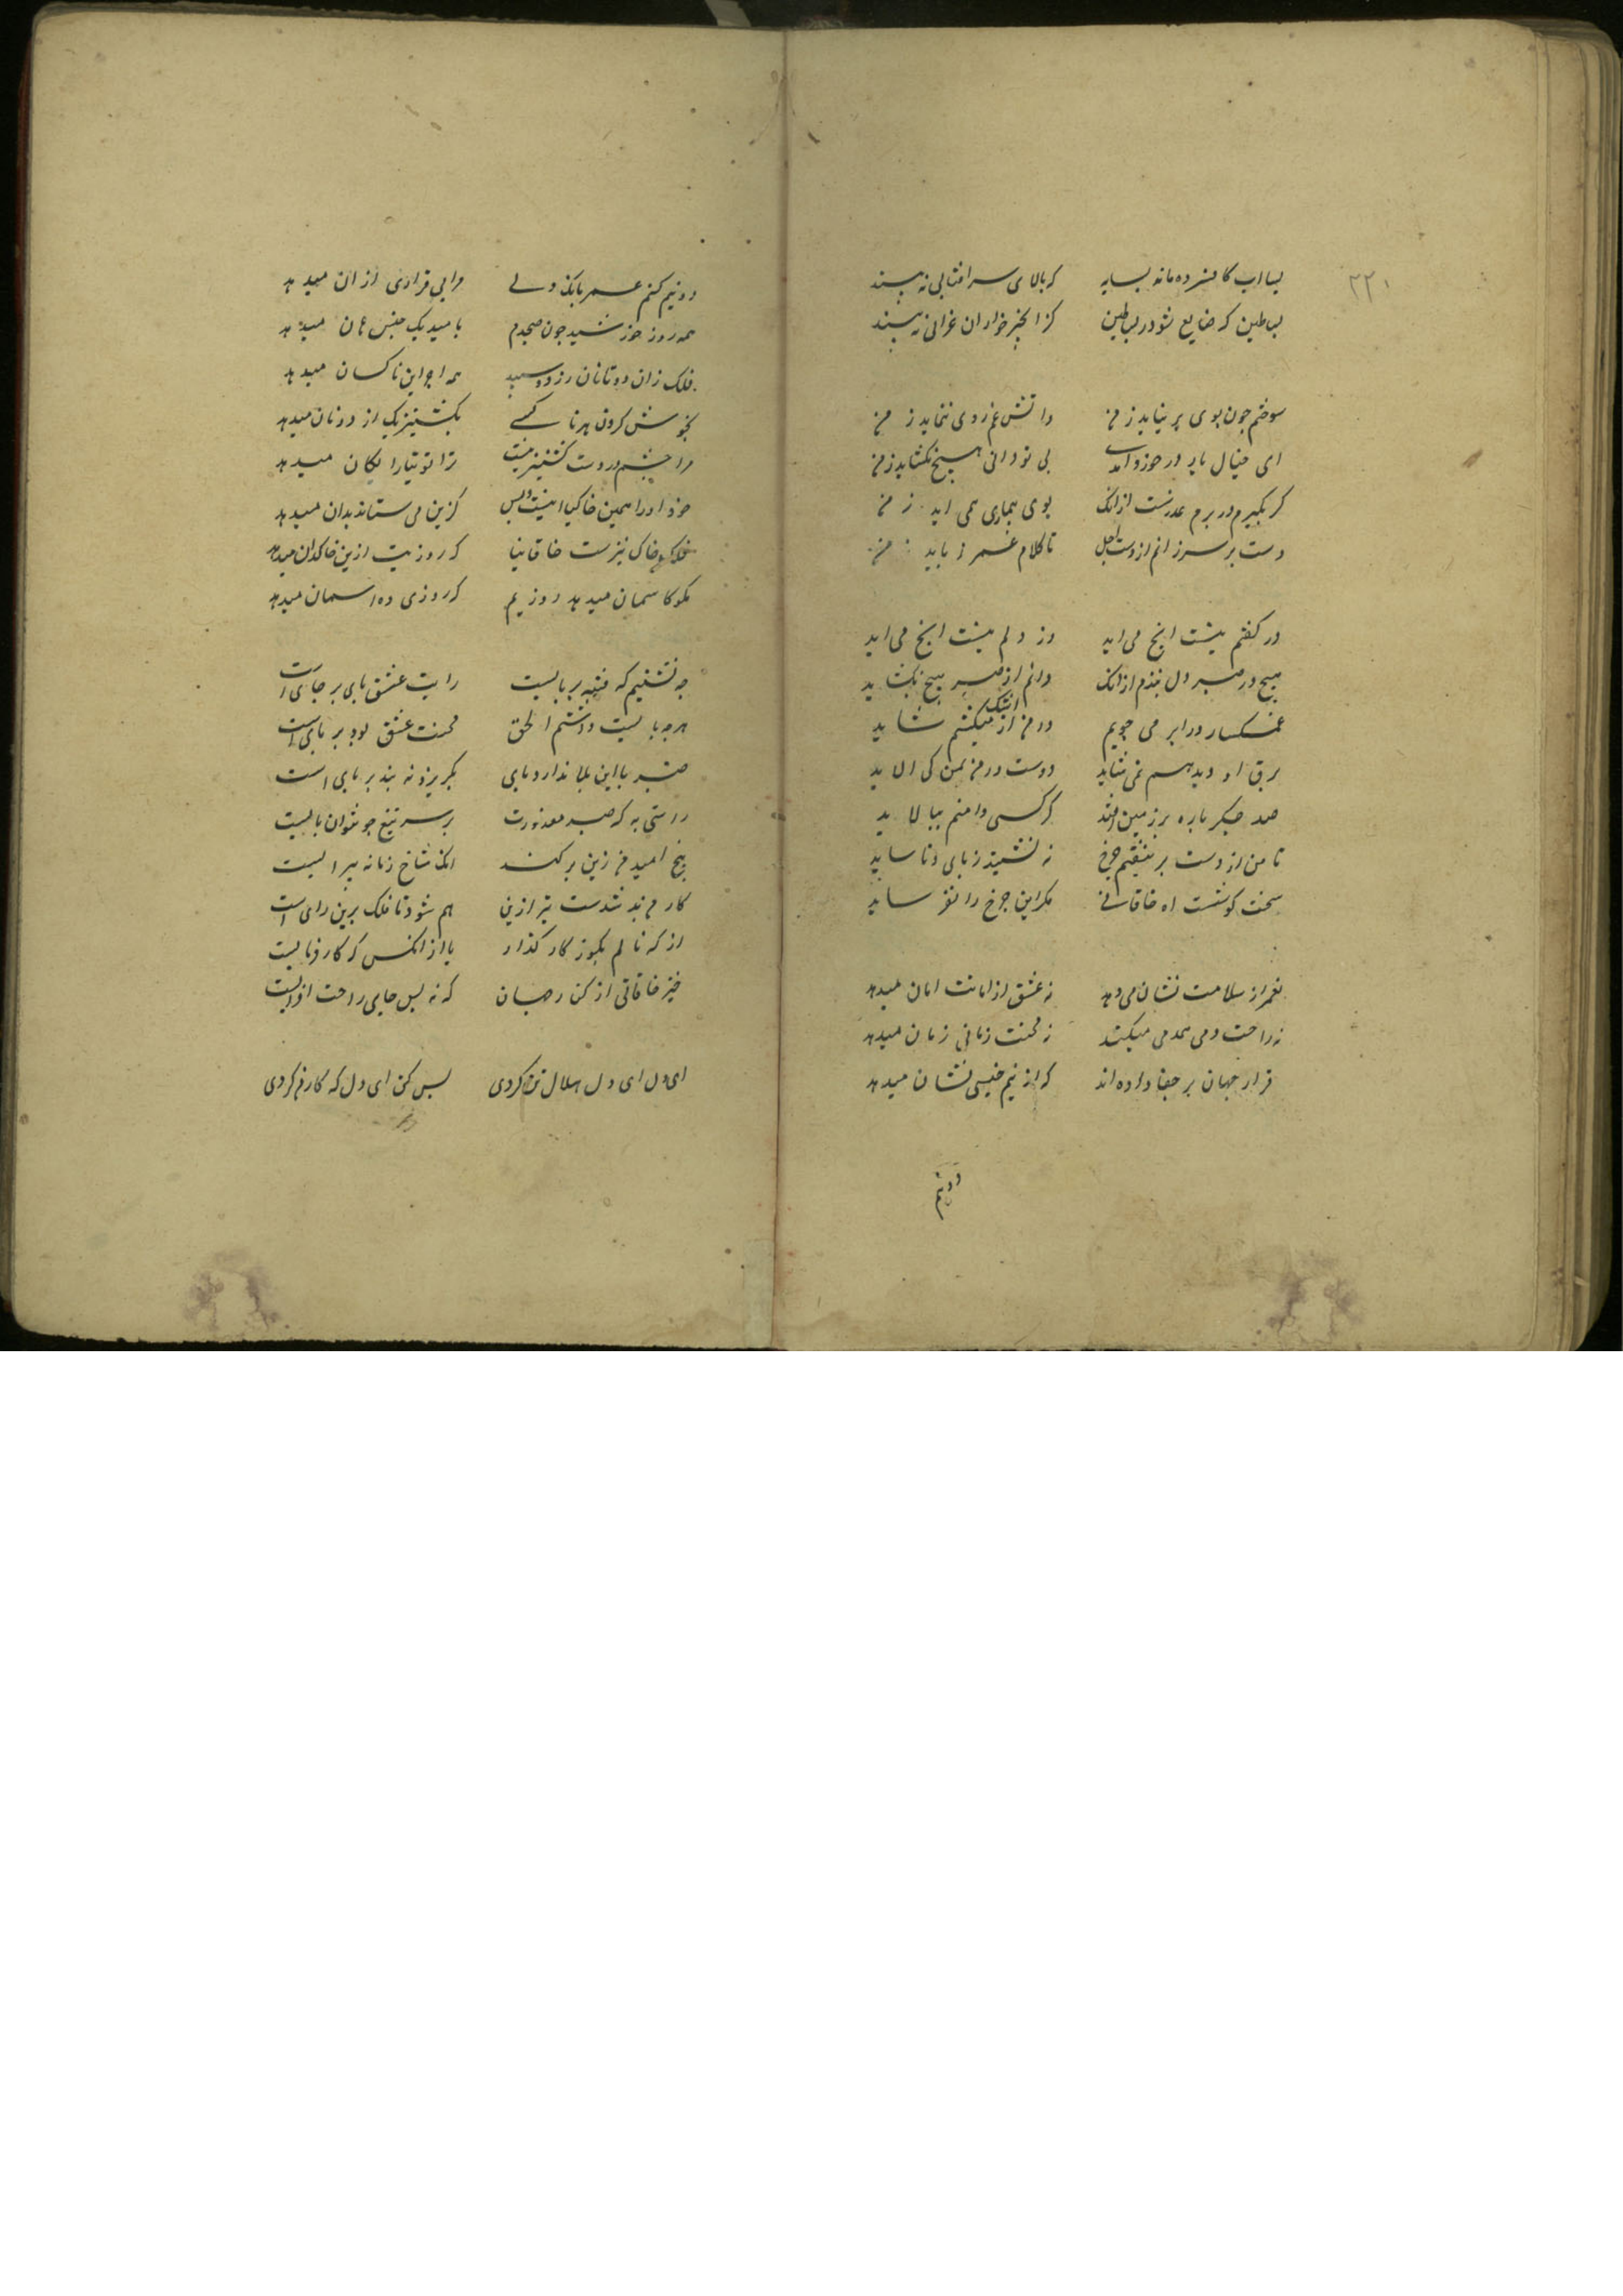 ۲۲۱
بسا اب کافسرده ماند بسایه که بالای سر افتابی نه بیند
بسا طین که ضایع شود در بساطین کز انجیر خواران غرابی نه بیند
سوختم چون بوی بر نیاید ز من واتش غم روی ننماید ز من
ای خیال یار در خورد آمدی بی تو دانی هیچ نکشاید ز من
کر نکیرم در برم عذرست ازانک بوی بیماری همی اید ز من
دست بر سر زانم از دست اجل تا کلاه عمر نرباید ز من
در کفم نیست انچ می اید وز دلم نیست انچ می اید
هیچ در صبر دل نبندم ازانک دانم از صبر هیچ نکشاید
غمکسار ورا بر می جویم در من ار میکشم اشک شاید
برق او دید هم نمی شاید دوست در من بمن کی الاید
صد جکر پاره بر زمین افتد کر کسی دامنم بپالاید
تا من از دست برنیفتم چرخ نه نشیند ز پای و نا ساید
سخت کوشست اه خاقانی مکر این چرخ را بفرساید
نه عمر از سلامت نشان می دهد نه عشق از امانت امان میدهد
نه راحت دمی همدمی میکند نه محنت زمانی زمان میدهد
قرار جهان بر جفا داده اند که از نیم جنسی نشان میدهد
دو نیم
دو نیم کنم عمر با یک ولی مرا بی قراری از ان میدهد
همه روز خورشید چون صبحدم بامید یک جنس جان میدهد
فلک زان دو تا نان زرد و سپید همه اجراین ناکسان میدهد
بخوش کردن هر ناکسی بکشنیز یک از دو نان میدهد
مرا چشم دردست کشنیز نیست ترا توتیا رایکان میدهد
خود او را همین خاکپا اینست و بس کزین می ستاند بدان میدهد
فلک خاک بیزست خاقانیا که روزیت ازین خاکدان میدهد
مکو کاسمان میدهد روزیم که روزی ده اسمان میدهد
چه نشینیم که فتنه بر پایست رایت عشق پای بر جای است
هرچه بایست داشتم الحق محنت عشق بود بر پای است
صبر با این بلا ندارد پای بکریزد نه بند بر پای است
راستی به که صبر معذورست بر سر تیغ چو نتوان پایست
بیخ امید من زین برکند انک شاخ زمانه پیرایست
کار من بد شدست بتر ازین هم شود تا فلک برین رای است
از که نالم بکو ز کار کذار یا از انکس که کار فرمایست
خیز خاقانی از کنج جهان که نه بس جای راحت افزایست
ای دل ای دل هلاک تن کردی بس کن ای دل که کار من کردی